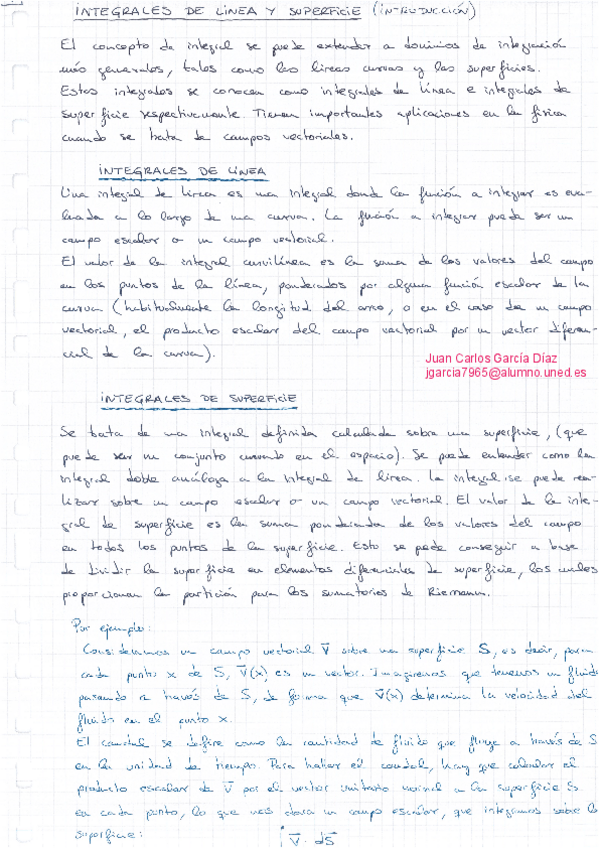 INTEGRALES DE LINEA Y SUPERFICIE (INTRODUCCIÓN)
El concepto de integral se puede extender a dominios de integración
más generales, tales como las lineas curvas y las superficies.
Estas integrales se conocen como integrales de línea e integrales de
superficie respectivamente. Tienen importantes aplicaciones en la física
cuando se trata de campos vectoriales.
INTEGRALES DE LINEA
Una integral de linea es una integral donde la función a integrar es eva-
luada a lo largo de una curva. La función a integrar puede ser un
campo escalar o un campo vectorial.
El valor de la integral curvilínea es la suma de los valores del campo
en los puntos de la línea, ponderados por alguna función escalar de la
curva (habitualmente la longitud del arco, o en el caso de un campo
vectorial, el producto escalar del campo vectorial por un vector diferen-
cial de la curva).
Juan Carlos García Díaz
jgarcia7965@alumno.uned.es
INTEGRALES DE SUPERFICIE
Se trata de una integral definida calculada sobre una superficie, (que
puede ser un conjunto curvado en el espacio). Se puede entender como la
integral doble análoga a la integral de linea. La integral se puede rea-
lizar sobre un campo escalar o un campo vectorial. El valor de la inte-
gral de superficie es la suma ponderada de los valores del campo
en todos los puntos de la superficie. Esto se puede conseguir a base
de dividir la superficie en elementos diferenciales de superficie, los cuales
proporcionan la partición para los sumatorios de Riemann.
Por ejemplo:
Consideramos un campo vectorial V sobre una superficie S, es decir, para
cada punto x de S, V(x) es un vector. Imaginemos que tenemos un fluido
pasando a través de S, de forma que V(x) determina la velocidad del
fluido en el punto x.
El caudal se define como la cantidad de fluido que fluye a través de S
en la unidad de tiempo. Para hallar el caudal, hay que calcular el
producto escalar de V por el vector unitario normal a la superficie S
en cada punto, lo que nos dará un campo escalar, que integramos sobre la
superficie:
∫ V · dS